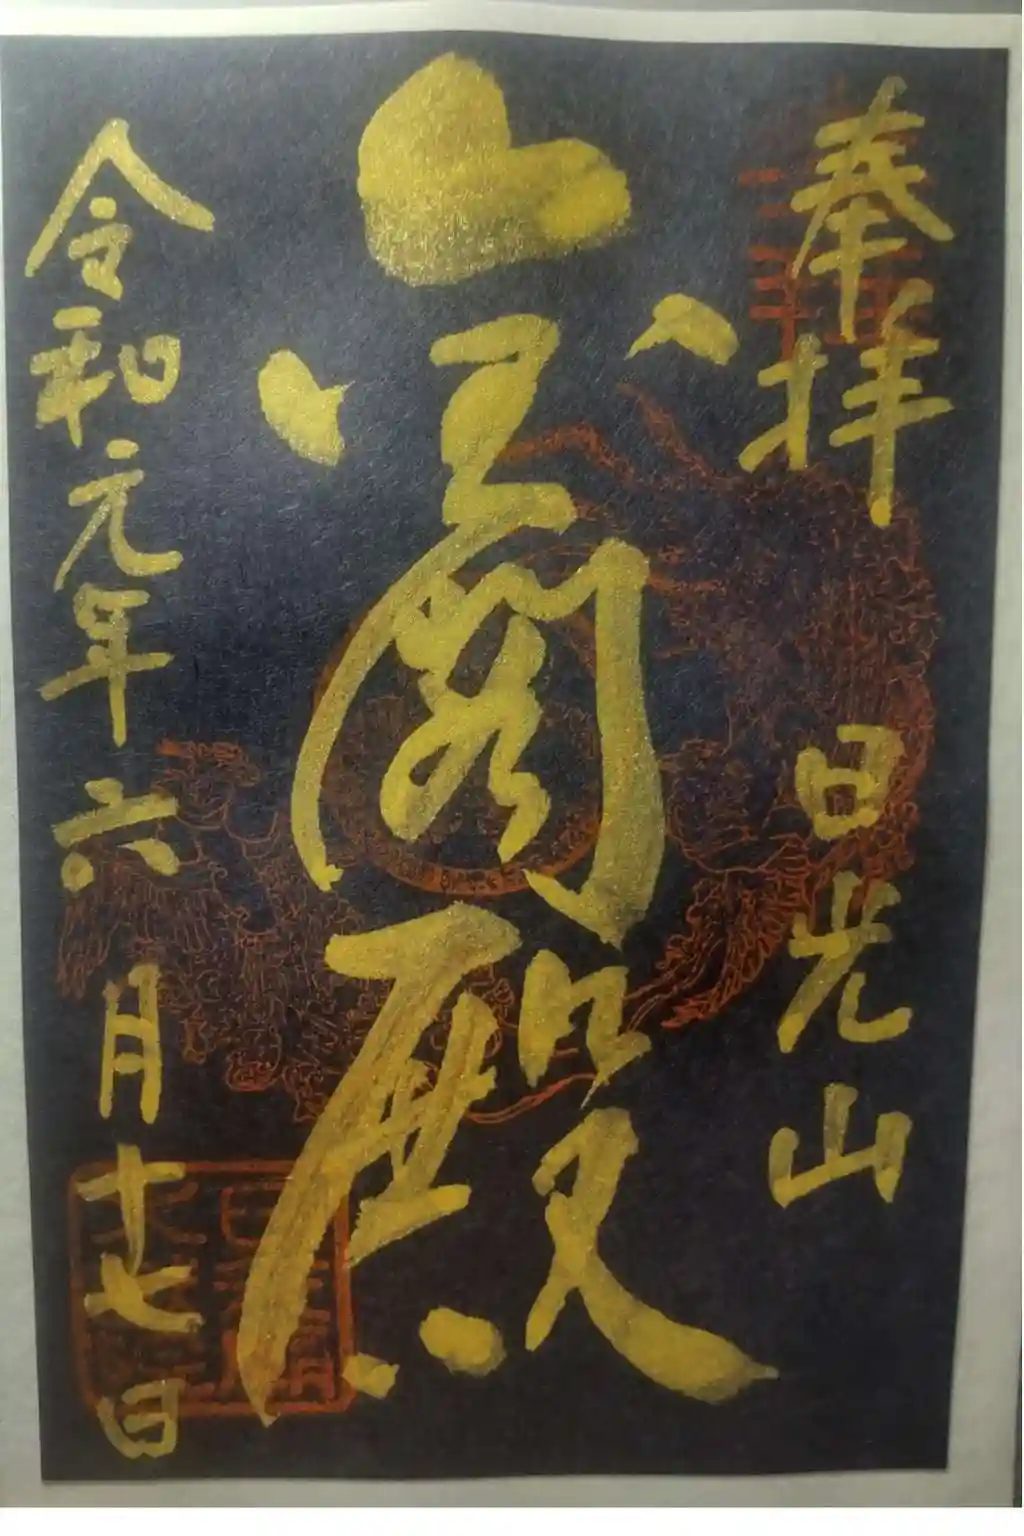 奉拝 日光山
金閣殿
令和元年六月十七日